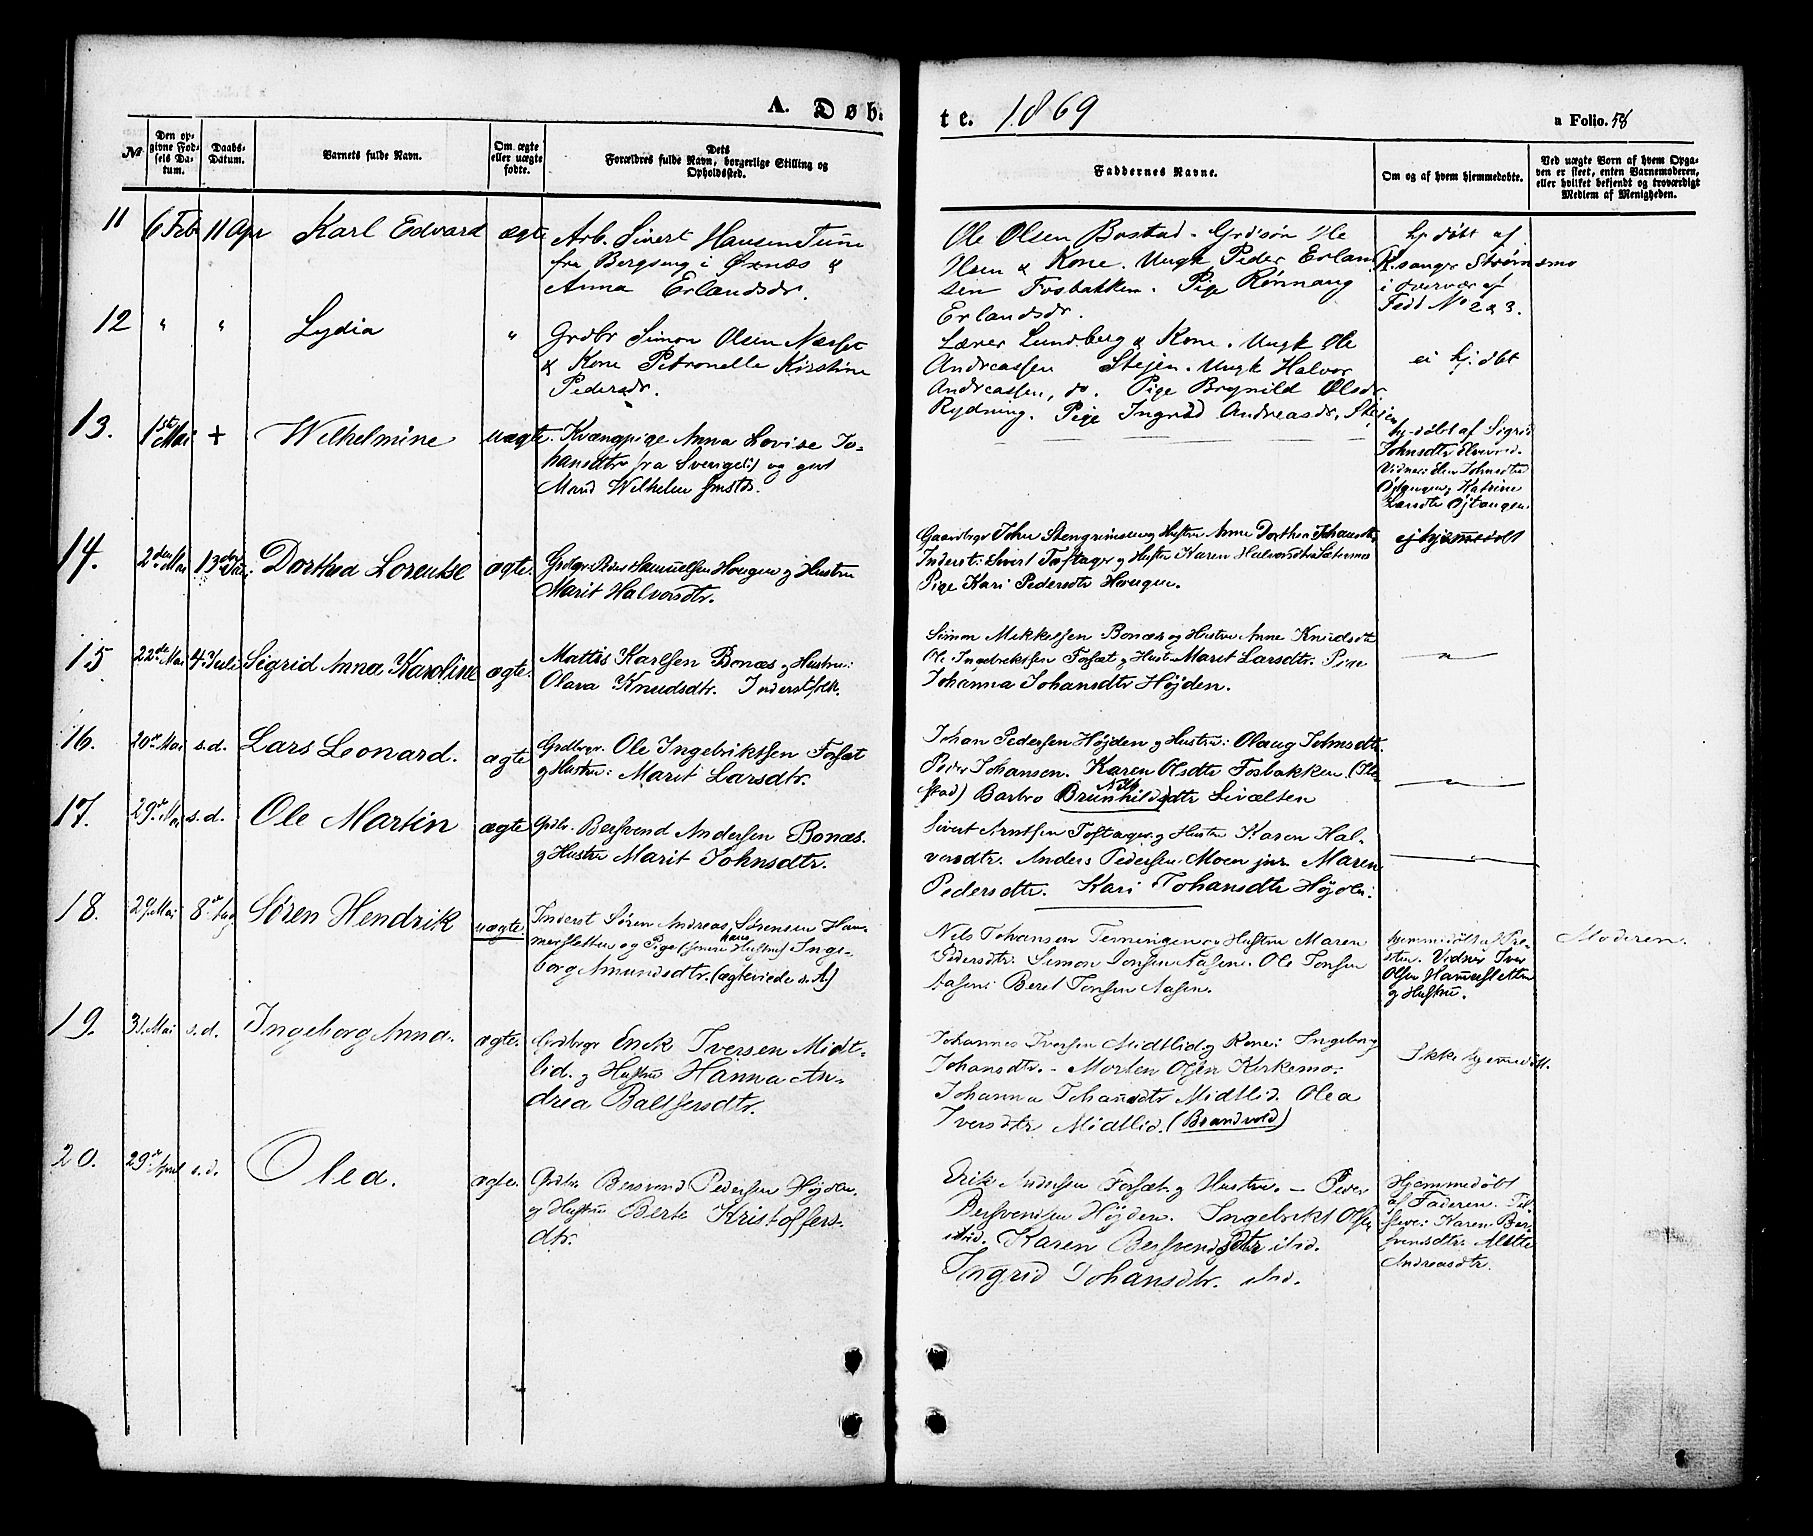 A. Døb-
te. 1869
a Folio. 58
№
Den op-
givne Fød-
sels Da-
tum.
Daabs-
Datum.
Barnets fulde Navn.
Om ægte
eller uægte
fødte.
Dets
Forældres fulde Navn, borgerlige Stilling og
Opholdssted.
Faddernes Navne.
Om og af hvem hjemmedøbte.
Ved uægte Børn af hvem Opga-
ven er skeet, enten Barnemoderen,
eller hvilket bekjendt og troværdigt
Medlem af Menigheden.
11 6 Feb 11 Apr Karl Edvard ægte
Arb. Sivert Hansen Tunn
fra Bergseng i Øxnæs &
Anna Erlandsdr.
Ole Olsen Bostad. Grdsøn Ole
Olsen & Kone. Ungk Peder Erland
sen Fosbakken. Pige Rønnaug
Erlandsdr.
hj. døbt af
K.sanger Strømsmo
i overvær af
Fadd No 2 & 3.
12 " " Lydia "
Grdbr Simon Olsen Næsset
& Kone Petronelle Kirstine
Pedersdr.
Lærer Lundberg & Kone. Ungk Ole
Andreassen Stejen. Ungk Halvor
Andreassen, do. Pige Brynild Olsdr
Rydning. Pige Ingrid Andreasdr. Stejen
ei hj. døbt
13. 1ste Mai + Wilhelmine uægte.
Kvængpige Anna Lovise Jo-
hansdtr fra Sverige og gvt
Mand Wilhelm
hj-døbt af Sigrid
Johnsdtr
Vidner: Johnsdtr
Øjtangen, Katrine
Larsdtr Øjtangen
14. 2den Mai 13de Juni Dorthea Lorentse ægte.
Grdbgr Peder Samuelsen Hougen og Hustru
Marit Halvorsdtr.
Gaardbgr John Stengrimsen og Hustru Anne Dorthea Johansdtr
Inderst: Sivert Toftager og Hustru Karen Halvorsdtr
Pige Kari Pedersdtr Hougen.
ej hjemmedøbt
15 22de Mai 4 Juli Sigrid Anna Karoline ægte.
Mattis Karlsen Bonæs og Hustru:
Olava Knudsdtr. Inderstfolk.
Simon Mikkelsen Bonæs og Hustru Anne Knudsdtr
Ole Ingebriktsen Forsæt og Hustru Marit Larsdtr. Pige
Johanna Johansdtr Højden.
"
16. 20de Mai s.d. Lars Leonard. ægte
Grdbgr. Ole Ingebriktsen Forsæt
og Hustru: Marit Larsdtr.
Johan Pedersen Højden og Hustru: Olaug Johnsdtr.
Peder Johansen. Karen Olsdtr Fosbakken (Ile-
stad) Barbro Brunhild Nilsdtr Sivaltsen
"
17. 29de Mai s.d. Ole Martin ægte
Grdbr. Bersvend Andersen Bonæs.
og Hustru Marit Johnsdtr.
Sivert Arntsen Toftager og Hustru Karen Hal-
vorsdtr. Anders Pedersen Moen jnr. Maren
Pedersdtr. Kari Johansdtr Højden.
"
18. 29 Mai 8de Aug Søren Hendrik uægte.
Inderst Søren Andreas Sørensen Ham-
mersletten og Pige (senere hans Hustru) Inge-
borg Amundsdtr. (ægteviede s. A)
Nils Johansen Temingen og Hustru Maren
Pedersdtr: Simon Jonsen Aasen. Ole Jonsen
Aasen: Beret Jonsen Aasen.
hjemmedøbt af Præ-
sten. Vidner Iver
Olsen Hammersletten
og Hustru.
Moderen.
19. 31. Mai s.d. Ingeborg Anna. ægte.
Grdbrgr Erick Iversen Midt-
lid. og Hustru Hanna An-
drea Baltsersdtr.
Johannes Iversen Midtlid. og Kone: Ingeborg
Johansdtr. - Morten Olsen Kirkemo.
Johanna Johansdtr Midtlid. Olea
Iversdtr Midtlid. (Brandvold)
Ikke hjemmedøbt.
20. 29de April s.d. Olea. ægte.
Grdbr Bersvend Pedersen Højden.
og Hustru Berte Kristoffers-
dtr.
Erik Andersen Forsæt og Hustru. - Peder
Bersvendsen Højden. Ingebrikt Olsen
ibid. Karen Bersvendsdtr ibid.
Ingrid Johansdtr. ibid.
Hjemmedøbt
af Faderen. Til-
stede: Karen Ber-
svensdtr. Alette
Andreasdtr.